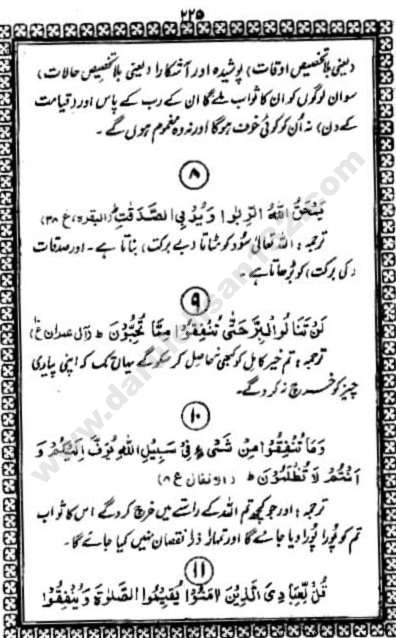 ۲۲۵
(یعنی بلا تخصیص اوقات) پوشیدہ اور آشکارا (یعنی بلا تخصیص حالات)
سو ان لوگوں کو ان کا ثواب ملے گا ان کے رب کے پاس اور (قیامت
کے دن) نہ اُن کو کوئی خوف ہوگا اور نہ وہ مغموم ہوں گے ۔
۸
يَمْحَقُ اللّٰهُ الرِّبٰوا وَيُرْبِي الصَّدَقٰتِ ط (البقرہ، ع ۳۸)
ترجمہ: اللہ تعالیٰ سُود کو مٹاتا (بے برکت) بناتا ہے ۔ اور صدقات
(کی برکت) کو بڑھاتا ہے ۔
۹
لَنْ تَنَالُوا الْبِرَّ حَتّٰى تُنْفِقُوا مِمَّا تُحِبُّوْنَ ط (آل عمران ع)
ترجمہ: تم خیر کامل کو کبھی نہ حاصل کر سکو گے یہاں تک کہ اپنی پیاری
چیز کو خرچ نہ کر دگے۔
۱۰
وَمَا تُنْفِقُوْا مِنْ شَىْءٍ فِىْ سَبِيْلِ اللّٰهِ يُوَفَّ اِلَيْكُمْ وَ
اَنْتُمْ لَا تُظْلَمُوْنَ ط (انفال ع ۸)
ترجمہ: اور جو کچھ تم اللہ کے راستے میں خرچ کر دگے اس کا ثواب
تم کو پُورا پُورا دیا جائے گا اور تمہارا ذرا نقصان نہیں کیا جائے گا۔
۱۱
قُلْ لِّعِبَادِىَ الَّذِيْنَ اٰمَنُوْا يُقِيْمُوا الصَّلٰوةَ وَيُنْفِقُوْا